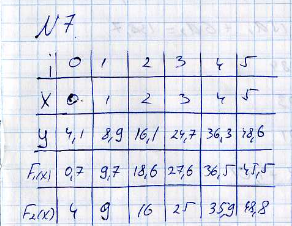 N 7.
i 0 1 2 3 4 5
x 0 1 2 3 4 5
y 4,1 8,9 16,1 24,7 36,3 48,6
F₁(x) 0,7 9,7 18,6 27,6 36,5 45,5
F₂(x) 4 9 16 25 35,9 48,8